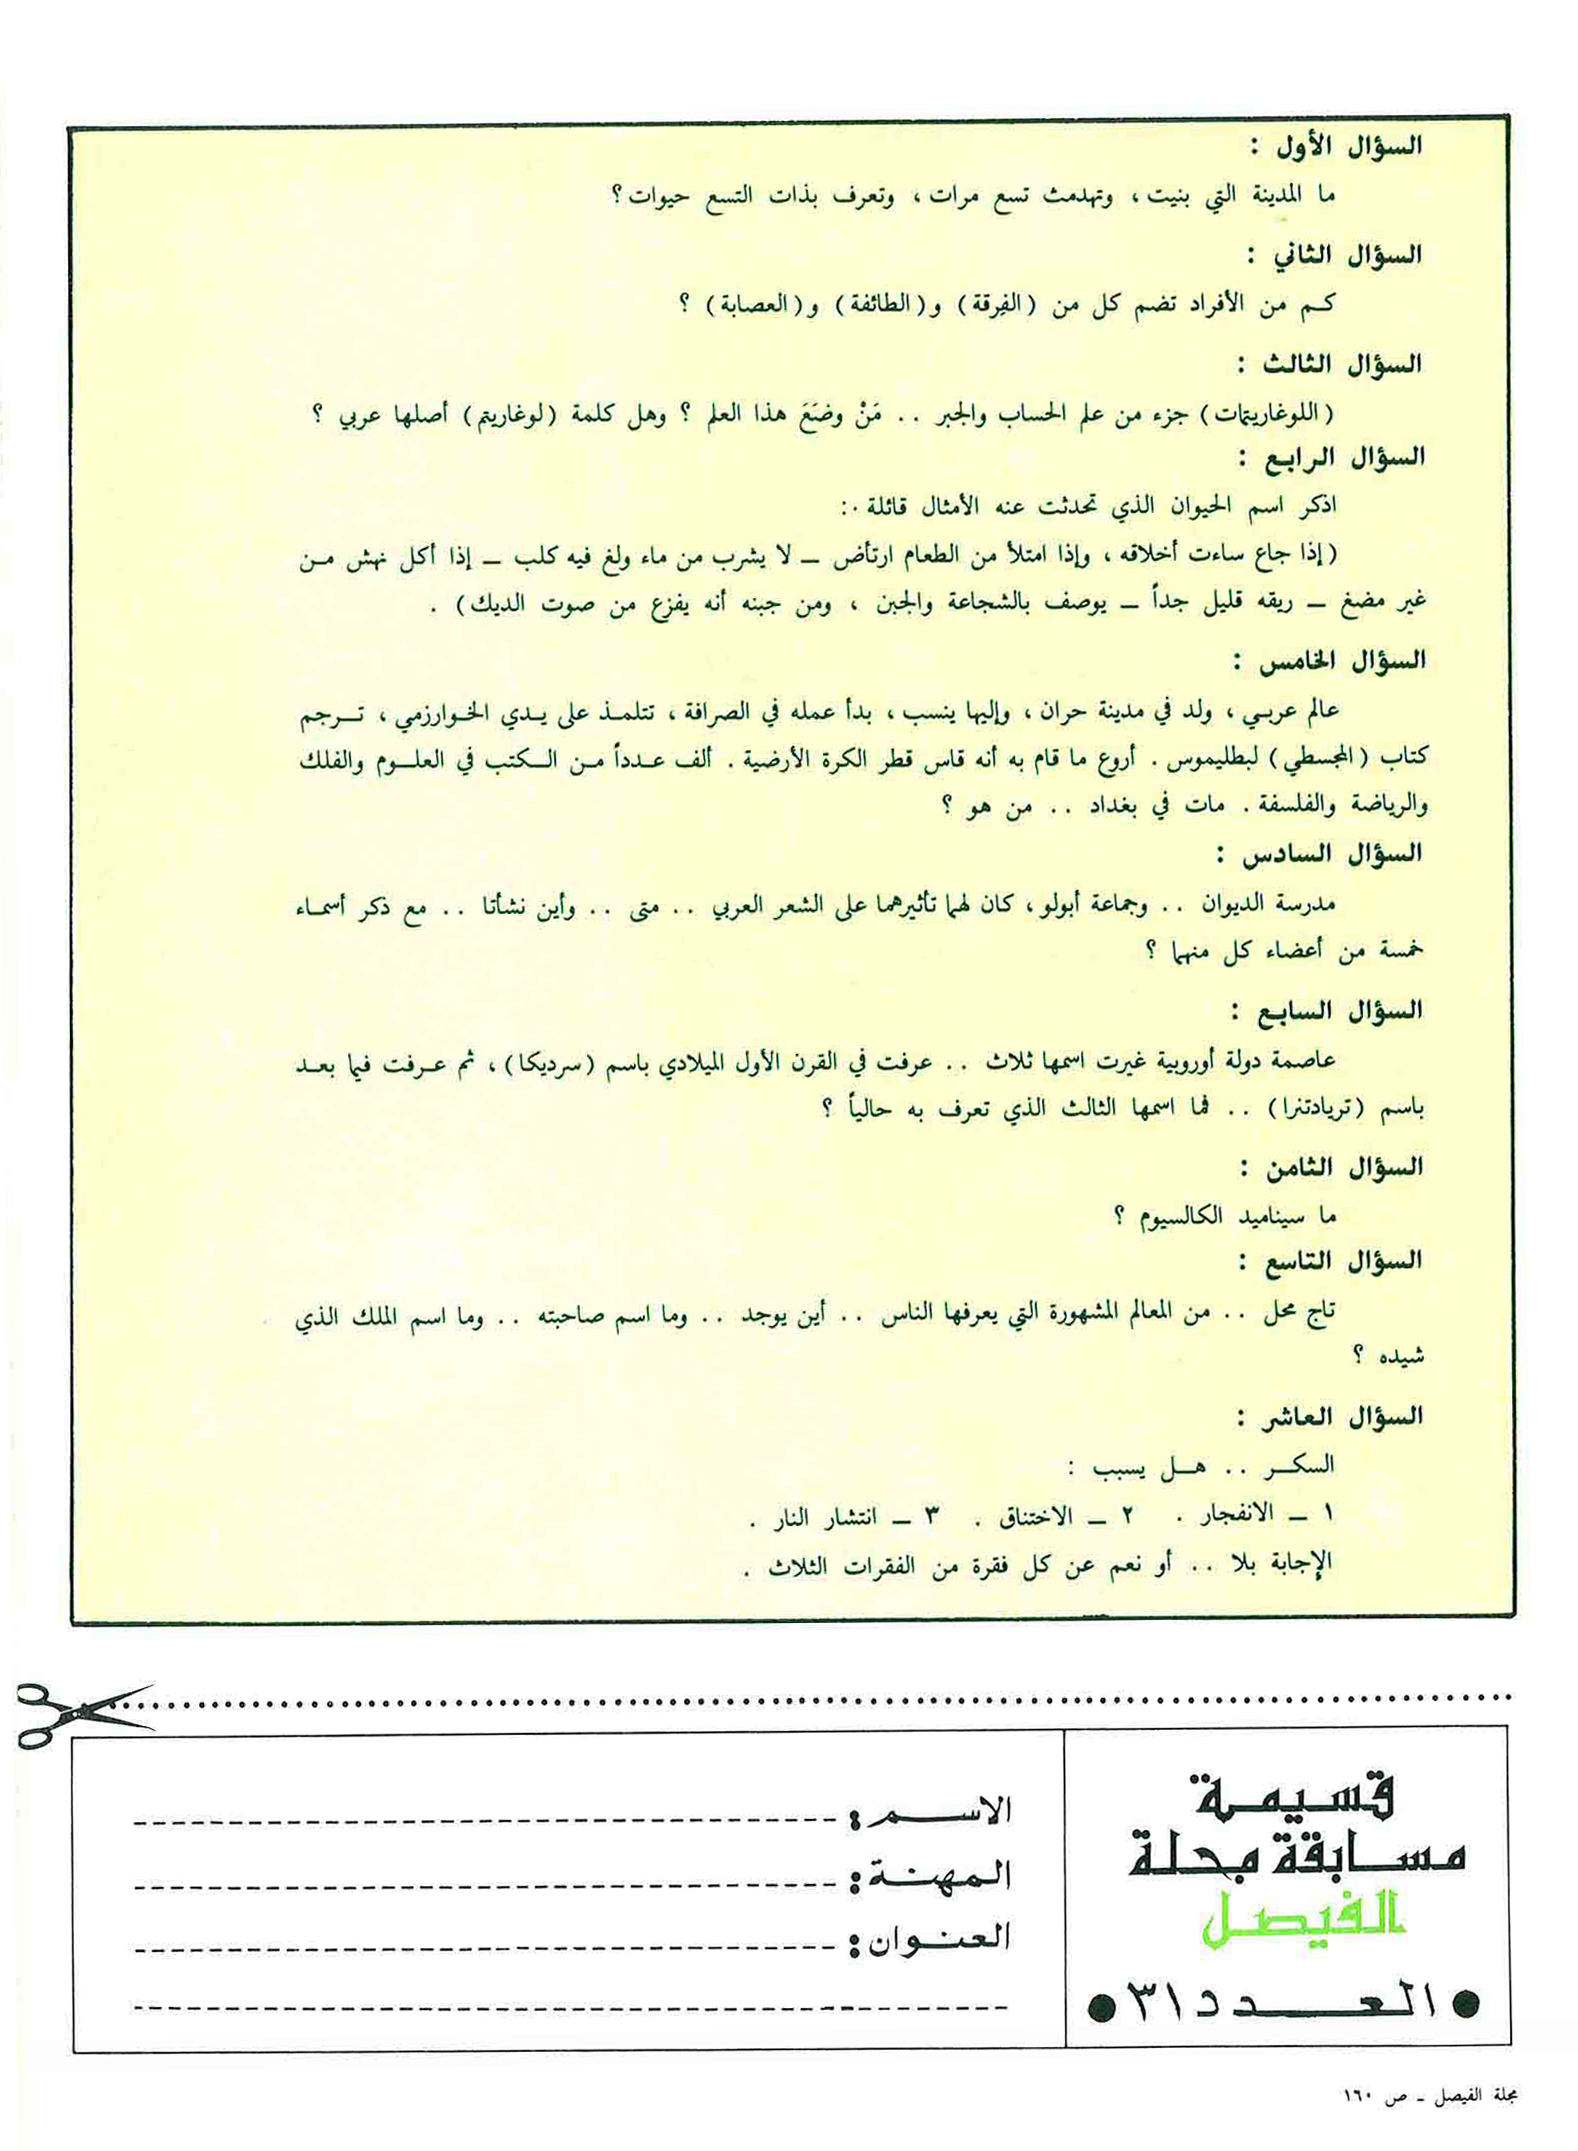 السؤال الأول :
ما المدينة التي بنيت ، وتهدمث تسع مرات ، وتعرف بذات التسع حيوات ؟
السؤال الثاني :
كـم من الأفراد تضم كل من ( الفِرقة ) و ( الطائفة ) و ( العصابة ) ؟
السؤال الثالث :
( اللوغاريتمات ) جزء من علم الحساب والجبر . . مَنْ وضَعَ هذا العلم ؟ وهل كلمة ( لوغاريتم ) أصلها عربي ؟
السؤال الرابع :
اذكر اسم الحيوان الذي تحدثت عنه الأمثال قائلة :
( إذا جاع ساءت أخلاقه ، وإذا امتلأ من الطعام ارتأض ـ لا يشرب من ماء ولغ فيه كلب ـ إذا أكل نهش مـن
غير مضغ ـ ريقه قليل جداً ـ يوصف بالشجاعة والجبن ، ومن جبنه أنه يفزع من صوت الديك ) .
السؤال الخامس :
عالم عربـي ، ولد في مدينة حران ، وإليها ينسب ، بدأ عمله في الصرافة ، تتلمـذ على يـدي الخـوارزمي ، تـرجم
كتاب ( المجسطي ) لبطليموس . أروع ما قام به أنه قاس قطر الكرة الأرضية . ألف عـدداً مـن الـكتب في العلـوم والفلك
والرياضة والفلسفة . مات في بغداد . . من هو ؟
السؤال السادس :
مدرسة الديوان . . وجماعة أبولو ، كان لهما تأثيرهما على الشعر العربي . . متى . . وأين نشأتا . . مع ذكر أسماء
خمسة من أعضاء كل منهما ؟
السؤال السابع :
عاصمة دولة أوروبية غيرت اسمها ثلاث . . عرفت في القرن الأول الميلادي باسم ( سرديكا ) ، ثم عـرفت فيما بعـد
باسم ( تريادتنرا ) . . فما اسمها الثالث الذي تعرف به حالياً ؟
السؤال الثامن :
ما سيناميد الكالسيوم ؟
السؤال التاسع :
تاج محل . . من المعالم المشهورة التي يعرفها الناس . . أين يوجد . . وما اسم صاحبته . . وما اسم الملك الذي
شيده ؟
السؤال العاشر :
السكـر . . هـل يسبب :
١ ـ الانفجار . ٢ ـ الاختناق . ٣ ـ انتشار النار .
الإجابة بلا . . أو نعم عن كل فقرة من الفقرات الثلاث .
قسيمة
مسابقة مجلة
الفيصل
العدد ٣١
الاسم :
المهنة :
العنوان :
مجلة الفيصل ـ ص ١٦٠